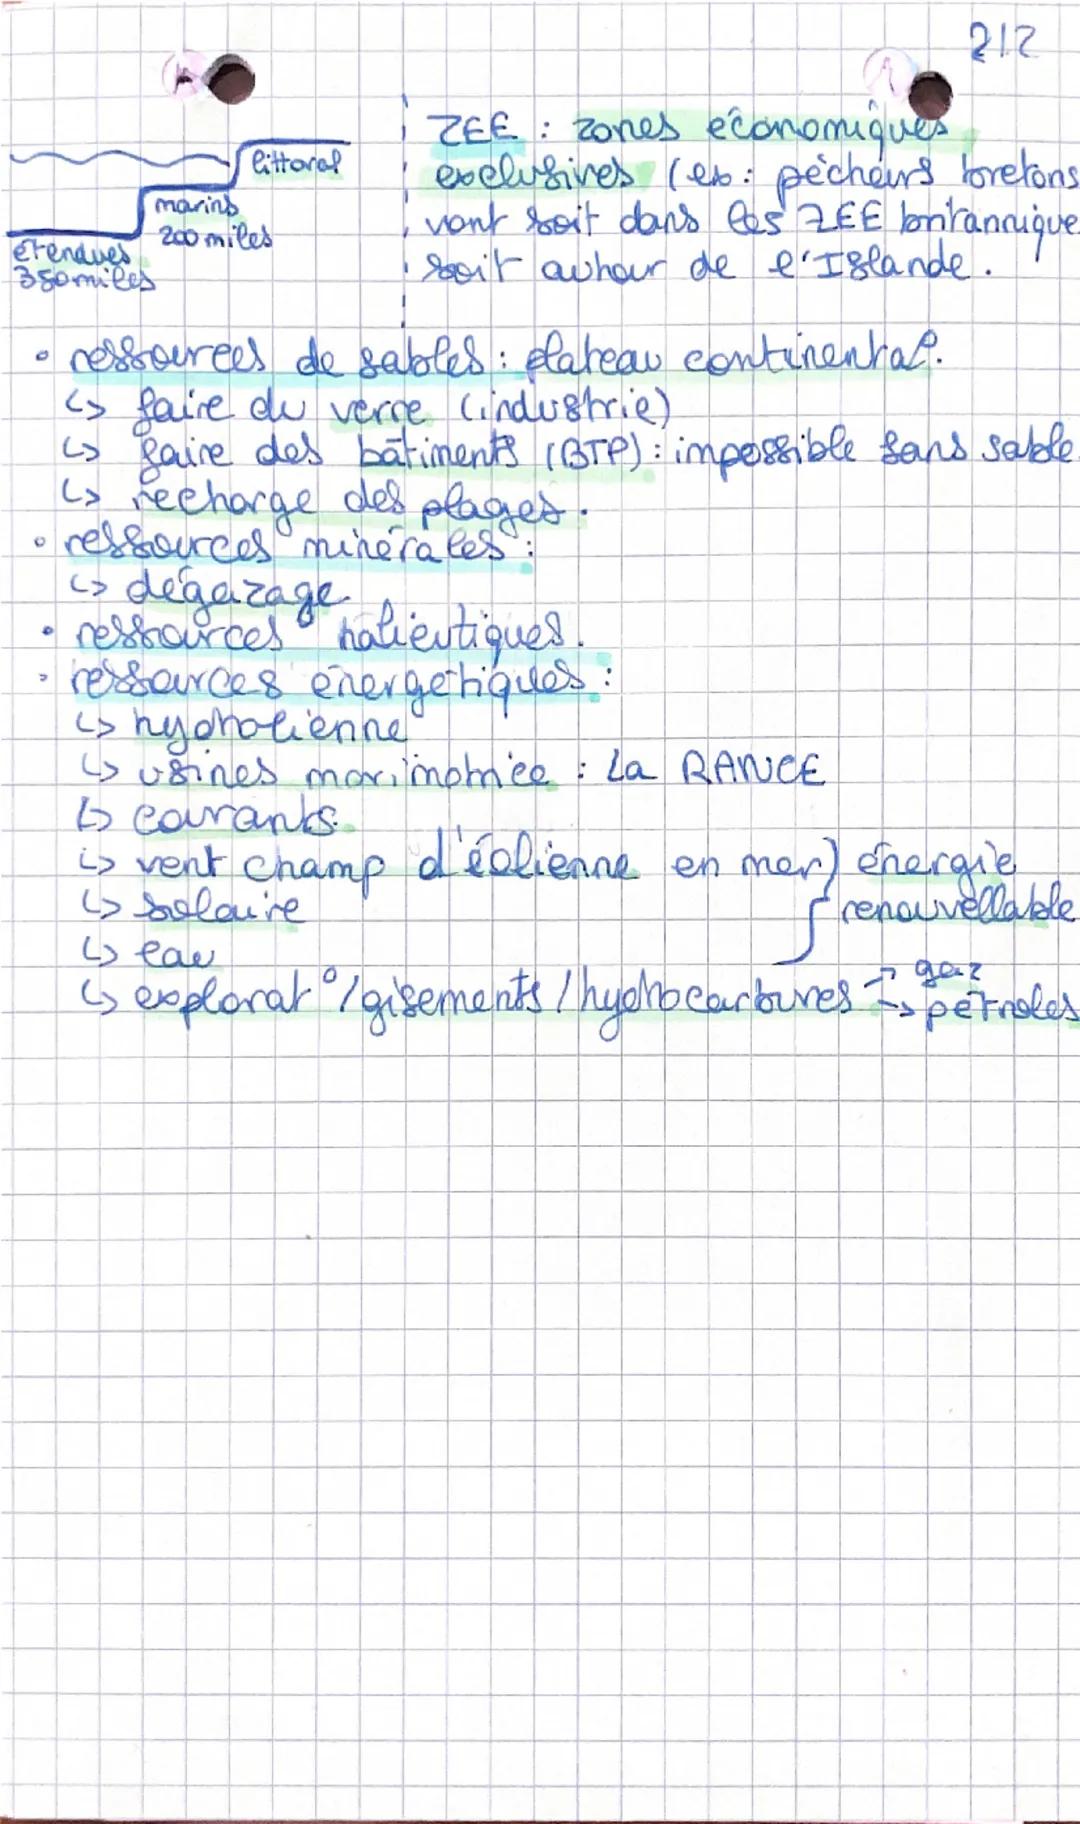 2/2
littoral
marins
200 miles
étendues
350 miles
ZEE : zones économiques
exclusives (ex : pêcheurs bretons
vont soit dans les ZEE britannique
soit autour de l'Islande.
• ressources de sables : plateau continental.
↳ faire du verre (industrie)
↳ faire des bâtiments (BTP) : impossible sans sable
↳ recharge des plages.
• ressources minérales :
↳ dégazage.
• ressources halieutiques.
• ressources énergétiques :
↳ hydrolienne
↳ usines marémotrice : La RANCE
↳ courants.
↳ vent champ d'éolienne en mer) énergie
↳ solaire renouvellable
↳ eau
↳ explorat° / gisements / hydrocarbures → gaz
→ pétroles